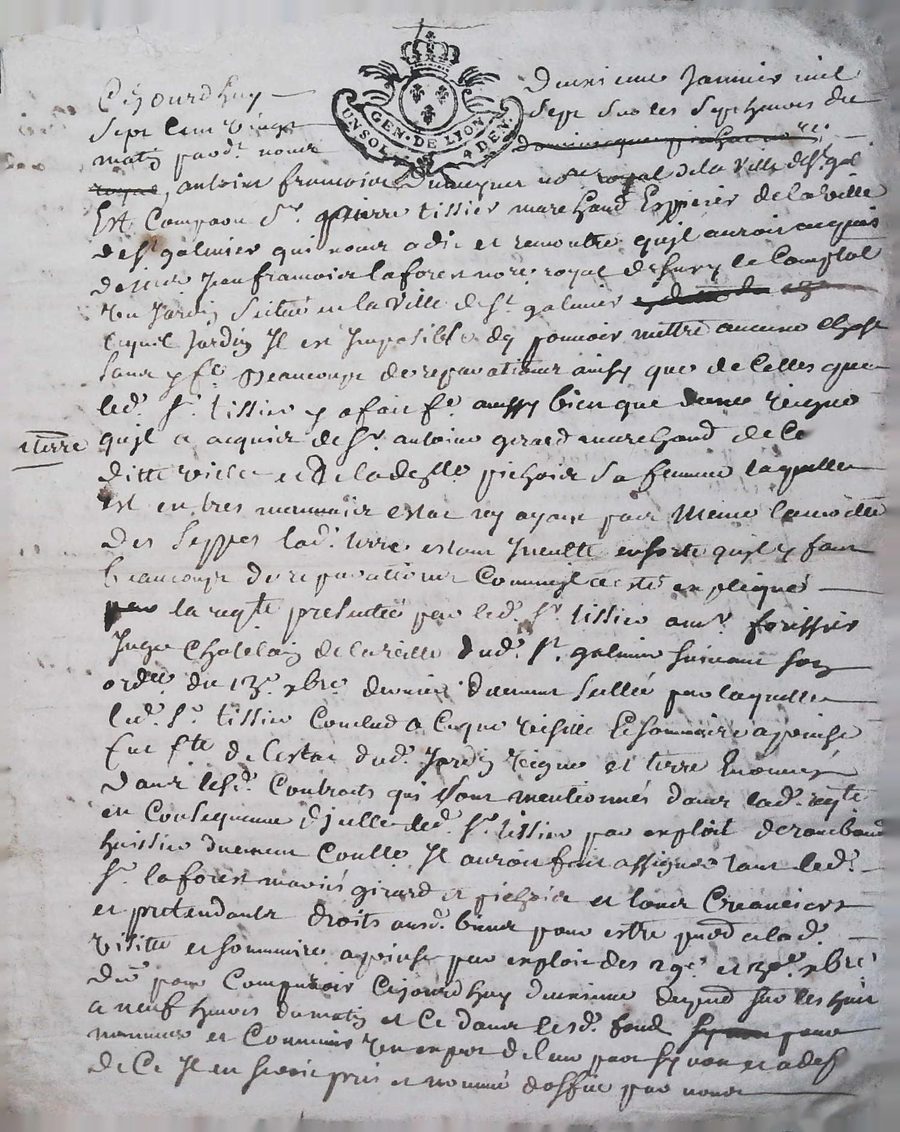 Cejourdhuy deuxieme Janvier mil
Sept Cent vingt Sept Sur les Sept heures du
GEN. DE LYON.
UN SOL 4 DEN.
matin pard. nous
antoine francoise nore royal de la ville de St. gal
Est Comparu Sr. pierre tissier marchand Eppicier de la ville
de St. galmier qui nous a dit et remontré quil auroit acquis
de Jean francoise laforest nore. royal de Sury le Comptal
Un Jardin Scitué en la ville de St. galmier
lequel Jardin Il est Imposible dy pouvoir mettre aucune chose
Sans y fe. Beaucoup de reparations ainsy que de Celles que
led. Sr. tissier y a fait fe. aussy bien que dune vigne
terre
quil a acquis de Sr. antoine girard marchand de Ce
ditte ville et de la delle. pichoir Sa femme laquelle
est en tres mauvais estat ny ayant pas Meme la moitié
des Seppes lad. terre estant Inculte ensorte quil y faut
beaucoup de reparations Comme il a esté expliqué
par la reqte presentée par led. Sr. tissier a mr. forissier
Juge Chatelain de la ville dud. St. galmier Suivant Son
ordce. du 13e. xbre. dernier duement Scellée par laquelle
led. Sr. tissier Conclud a Ceque visitte et Sommaire aprinse
Soit fte. de lestat dud. Jardin vigne et terre Enoncés
dans lesd. Contracts qui Sont mentionnés dans lad. reqte
en Consequence dicelle led. Sr. tissier par exploit de rambaud
huissier duement Conllé. Il auroit fait assigner tant led.
Sr. laforest mariés girard et pichoir et tous Creanciers
et pretendants droits ausd. biens pour estre proced. a lad.
visitte et Sommaire aprinse par exploit des 29e. et 30e. xbre.
dr. pour Comparoir Cejourdhuy deuxieme du pnt. Sur les huit
a neuf heures du matin et Ce dans lesd. fond pour
nommer et Convenir Un expert de leur part Sy non et a def
de Ce Il en Seroit pris et nommé doffice par nous